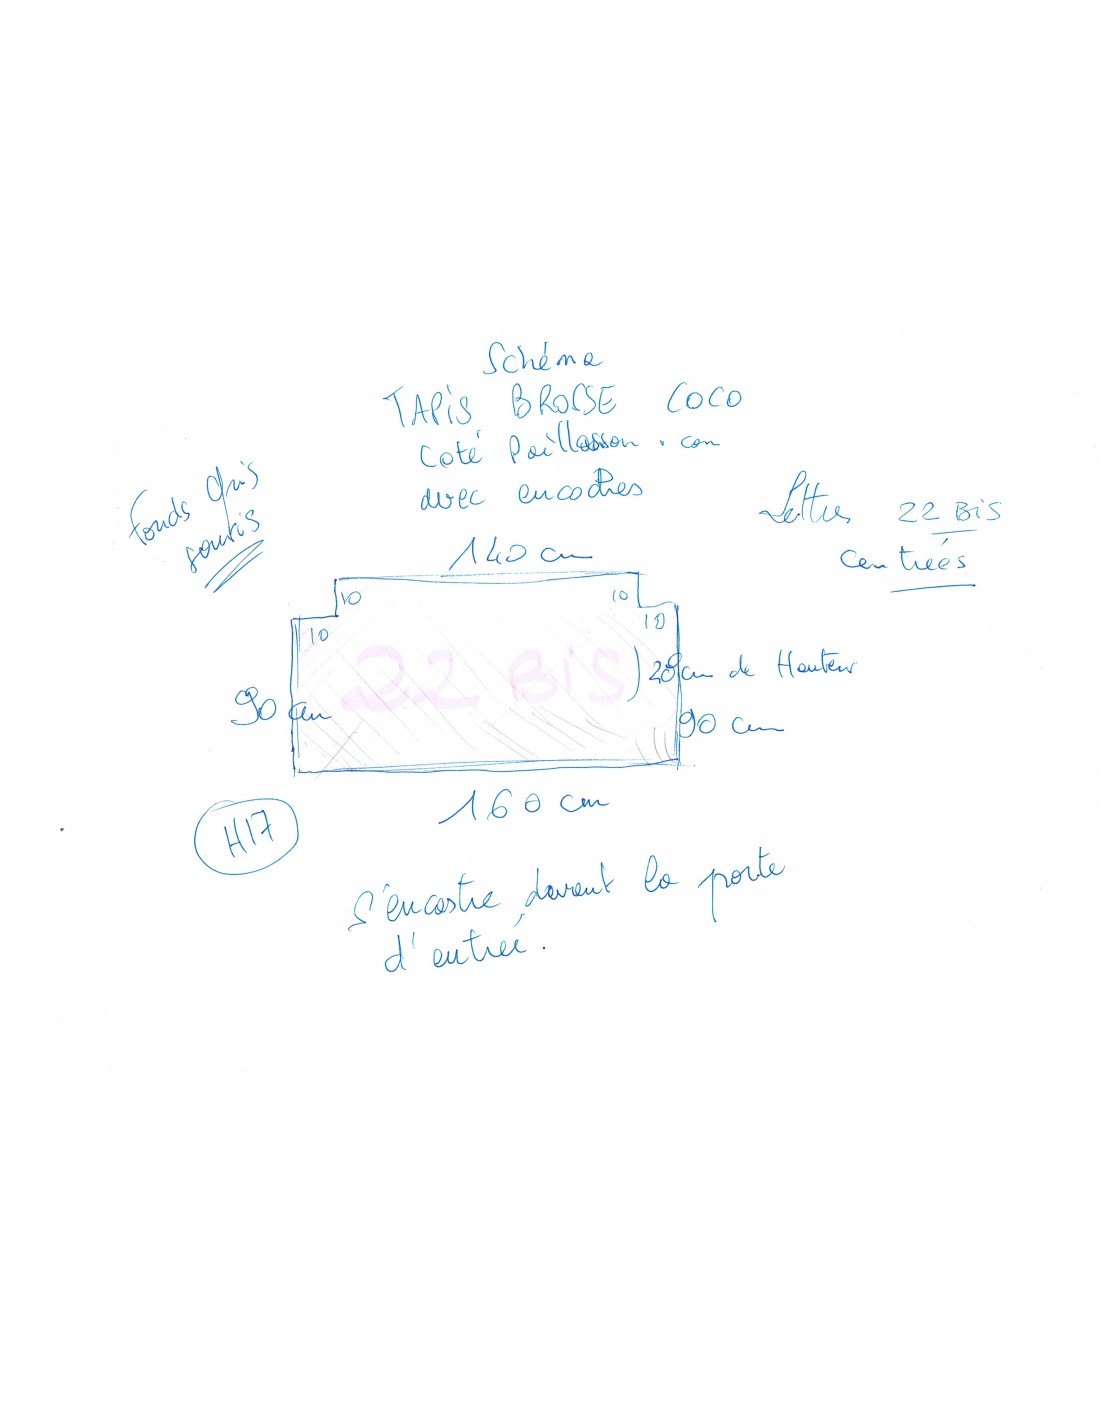 Schéma
TAPIS BROSSE COCO
Coté Paillasson.com
avec encoches
Fonds Gris
souris
Lettres 22 BIS
centrées
140 cm
10
10
10
10
22 BIS
20 cm de Hauteur
90 cm
90 cm
160 cm
H17
S'encastre devant la porte
d'entrée.